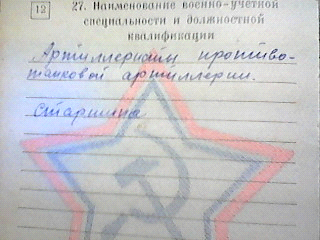 12
27. Наименование военно-учетной
специальности и должностной
квалификации
Артиллерийцы противо-
танковой артиллерии.
Старшина